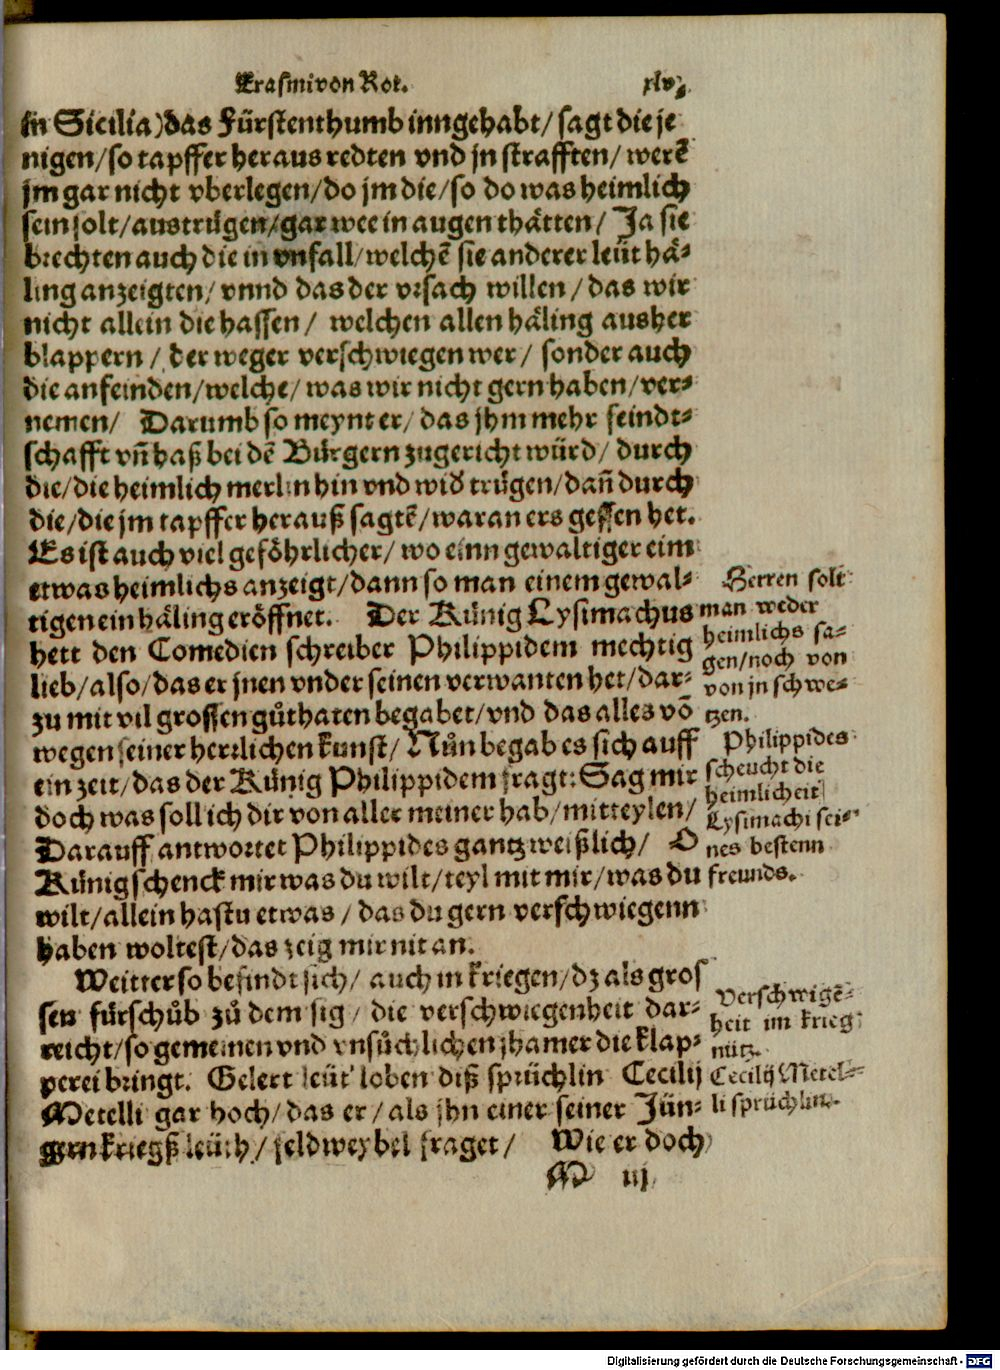 Erasmi von Rot. xlv.
in Sicilia) das Fürstenthumb inngehabt / sagt die je
nigen / so tapffer heraus redten vnd jn strafften / werẽ
jm gar nicht vberlegen / do jm die / so do was heimlich
sein solt / austrügen / gar wee in augen thätten / Ja sie
brechten auch die in vnfall / welchẽ sie anderer leüt hä⸗
ling anzeigten / vnnd das der vrsach willen / das wir
nicht allein die hassen / welchen allen häling ausher
blappern / der weger verschwiegen wer / sonder auch
die anfeinden / welche / was wir nicht gern haben / ver⸗
nemen / Darumb so meynt er / das jhm mehr feindt⸗
schafft vñ haß bei dẽ Bürgern zugericht würd / durch
die / die heimlich merlin hin vnd wid' trügen / dañ durch
die / die jm tapffer herauß sagtẽ / waran ers gessen het.
Es ist auch viel geföhrlicher / wo einn gewaltiger eim
etwas heimlichs anzeigt / dann so man einem gewal⸗
tigen ein häling eröffnet. Der Künig Lysimachus
hett den Comedien schreiber Philippidem mechtig
lieb / also / das er jnen vnder seinen verwanten het / dar⸗
zu mit vil grossen gůthaten begabet / vnd das alles võ
wegen seiner herrlichen kunst / Nůn begab es sich auff
ein zeit / das der Künig Philippidem fragt: Sag mir
doch was soll ich dir von aller meiner hab / mitteylen /
Darauff antwortet Philippides gantz weißlich / O
Künig schenck mir was du wilt / teyl mit mir / was du
wilt / allein hastu etwas / das du gern verschwiegenn
haben woltest / das zeig mir nit an.
Weitter so befindt sich / auch in kriegen / dz als gros
sen fürschůb zů dem sig / die verschwiegenheit dar⸗
reicht / so gemeinen vnd vnsüchlichen jhamer die klap⸗
perei bringt. Gelert leüt loben diß sprüchlin Cecilij
Metelli gar hoch / das er / als jhn einer seiner Jün⸗
gern kriegß leüth / feldweybel fraget / Wie er doch
M iij
Herren solt
man weder
heimlichs sa⸗
gen / noch von
von jn schwe⸗
tzen.
Philippides
scheucht die
heimlicheit
Lysimachi sei⸗
nes bestenn
freunds.
Verschwigẽ⸗
heit im krieg
nütz.
Cecilij Metel⸗
li sprüchlin.
Digitalisierung gefördert durch die Deutsche Forschungsgemeinschaft - DFG